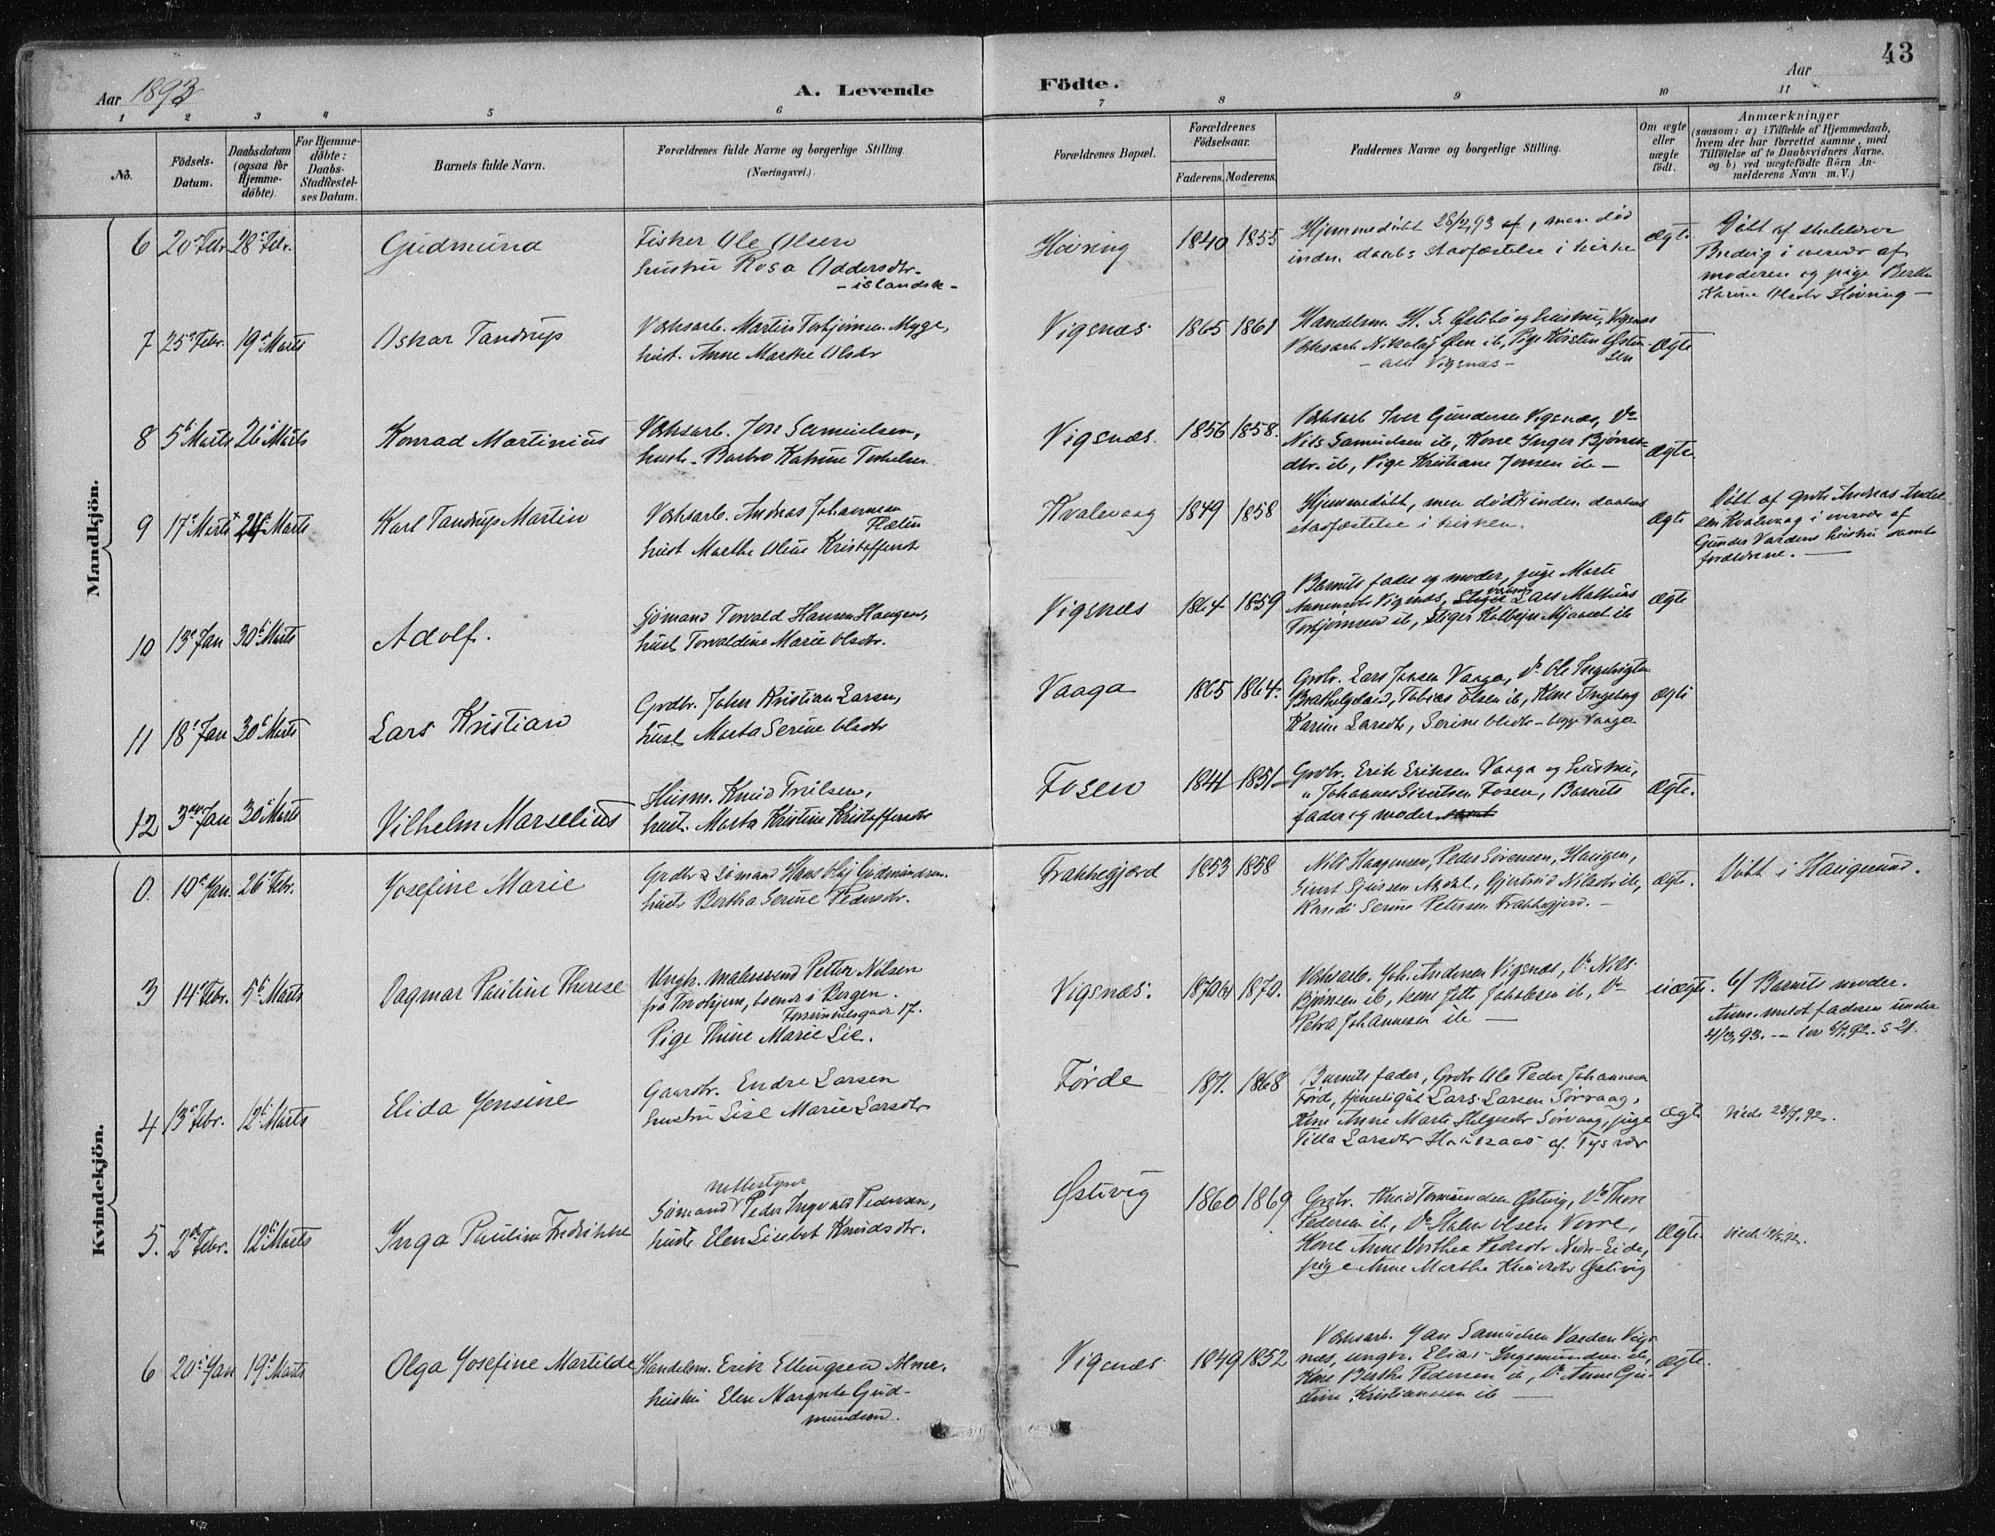 43
Aar 1893
A. Levende
Födte.
Aar
1 2 3 4 5 6 7 8 9 10 11
No.
Födsels-Datum.
Daabsdatum (ogsaa for Hjemme-döbte).
For Hjemme-döbte: Daabs-Stadfæstel-ses Datum.
Barnets fulde Navn.
Forældrenes fulde Navne og borgerlige Stilling.
(Næringsvei.)
Forældrenes Bopæl.
Forældrenes Födselsaar.
Faderens. Moderens.
Faddernes Navne og borgerlige Stilling.
Om ægte eller uægte födt.
Anmærkninger
(saasom: a) i Tilfælde af Hjemmedaab, hvem der har forrettet samme, med Tilföielse af to Daabsvidners Navne, og b) ved uægtefödte Börn An-melderens Navn m. V.)
Mandkjön.
6 20 Febr. 28 Febr. Gudmund
Fisker Ole Olsen
hustru Rosa Oddersdtr.
- islandsk -
Høvring 1840 1855
Hjemmedøbt 28/2 93 af, men død
inden daabs stadfæstelse i kirke
ægte
Døbt af
Bredvig i nærvær af
moderen og pige Berthe
Karine Olsdtr Høvring -
7 25 Febr. 19 Marts Oskar Tandrup
Værksarb. Martin Torbjørnsen Myge,
hust. Anne Marthe Olsdtr
Vigsnæs 1865 1861
Handelsm. H. S. Østebø og hustru, Vigsnæs
Værksarb. Nikolaj Øen ib, Pige Kirsten Østen
sen
- alle Vigsnæs -
ægte
8 5 Marts 26 Marts Konrad Martinius
Værksarb. Jon Samuelsen,
hust. Barbro Katrine Terkelsen
Vigsnæs. 1856 1858.
Værksarb Iver Gundersen Vigsnæs, Do
Nils Samuelsen ib, Kone Inger Bjørns-
dtr. ib, Pige Kristiane Jensen ib -
ægte
9 17 Marts 24 Marts Karl Tandrup Martin
Værksarb. Andreas Johannesen
hust Marthe Oline Kristoffersdtr
Kvalevaag 1849 1858
Hjemmedøbt, men død inden daabens
stadfæstelse i kirken.
ægte
Døbt af Grdb. Andreas
Kvalevaag i nærvær af
Gunder Vardens hustru samt
forældrene. -
10 13 Jan 30 Marts Adolf.
Sjømand Torvald Hansen Haugen,
hust Torvaldine Marie Olsdtr.
Vigsnæs 1864 1859
Barnets fader og moder, pige Marte
Vigsnæs, Lars Mathias
Torbjørnsen ib, Stiger Kolbejn Mjaanes ib
ægte
11 18 Jan 30 Marts Lars Kristian
Grdbr. John Kristian Larsen,
hust Marta Serine Olsdtr
Vaaga 1865 1864.
Grdbr. Lars Jansen Vaaga, Do Ole Ingebrigtsen
Brathelgeland, Tobias Olsen ib, Kone Ingeborg
Karine Larsdtr, Serine Olsdtr - begge Vaaga
ægte
12 3 Jan 30 Marts Vilhelm Marselius
Husm. Knud Truelsen,
hust. Marta Kristine Kristoffersdtr
Fosen 1841 1851
Grdbr. Erik Eriksen Vaaga og hustru,
" Johannes Sivertsen Fosen, Barnets
fader og moder
ægte.
Kvindekjön.
0. 10 Jan. 26 Febr. Josefine Marie
Grdbr & sømand Hans Olaj Gudmundsen.
hustr Bertha Serine Pedersdtr.
Frakkegjerd 1853 1858
Nils Haagensen, Peder Sørensen, Haugen,
Sivert Sjursen Medal, Gjertrud Nilsdtr ib,
Serine Petersen Frakkegjerd. -
ægte.
Døbt i Haugesund.
3 14 Febr. 5 Marts Dagmar Pauline Therese
Ungk. malersvend Petter Nilsen
fra Trondhjem, boende i Bergen.
17.
Pige Trine Marie Lie.
Vigsnæs. 1870 1870.
Værksarb. Joh. Andersen Vigsnæs, Do Nils
Bjørnsen ib, kone Jette Jakobsen ib, Do
Petra Johannesen ib -
uægte.
b/ Barnets moder.
Anm. meldt faderen under
4/3.93. -
4 13 Febr. 12 Marts Elida Jensine
Gaardbr. Endre Larsen
hustru Lise Marie Larsdtr
Førde 1871. 1868
Barnets fader, Grdbr Ole Peder Johannesen
Førd, Lars Larsen Sørvaag,
Kone Anne Marte Helgesdtr Sørvaag, pige
Tilla Larsdtr af Tysvær
ægte
viede 23/7.92.
5. 2 Febr. 12 Marts Inga Pauline Fredrikke
Sømand Peder Ingvald Pedersen,
hustr Elen Lisebet Knudsdtr.
Østevig 1860 1869
Grdbr. Knud Tormundsen Østvig, Do Thore
Pedersen ib, Do Olsen Vorre,
Kone Anne Dorthea Pedersdtr Nedre-Eide,
pige Anne Marthe Knudsdtr Østevig
ægte.
6 20 Jan 19 Marts Olga Josefine Martilde
Handelsm. Erik Ellingsen Alme.
hustru Elen Margrete Gud-
mundsen.
Vigsnæs 1849 1852
Værksarb. Jan Samuelsen Varden Vigs-
næs, ungkr. Elias Ingemundsen ib,
Kone Berthe Pedersen ib, Do Anne Gju-
Kristiansen ib -
ægte.